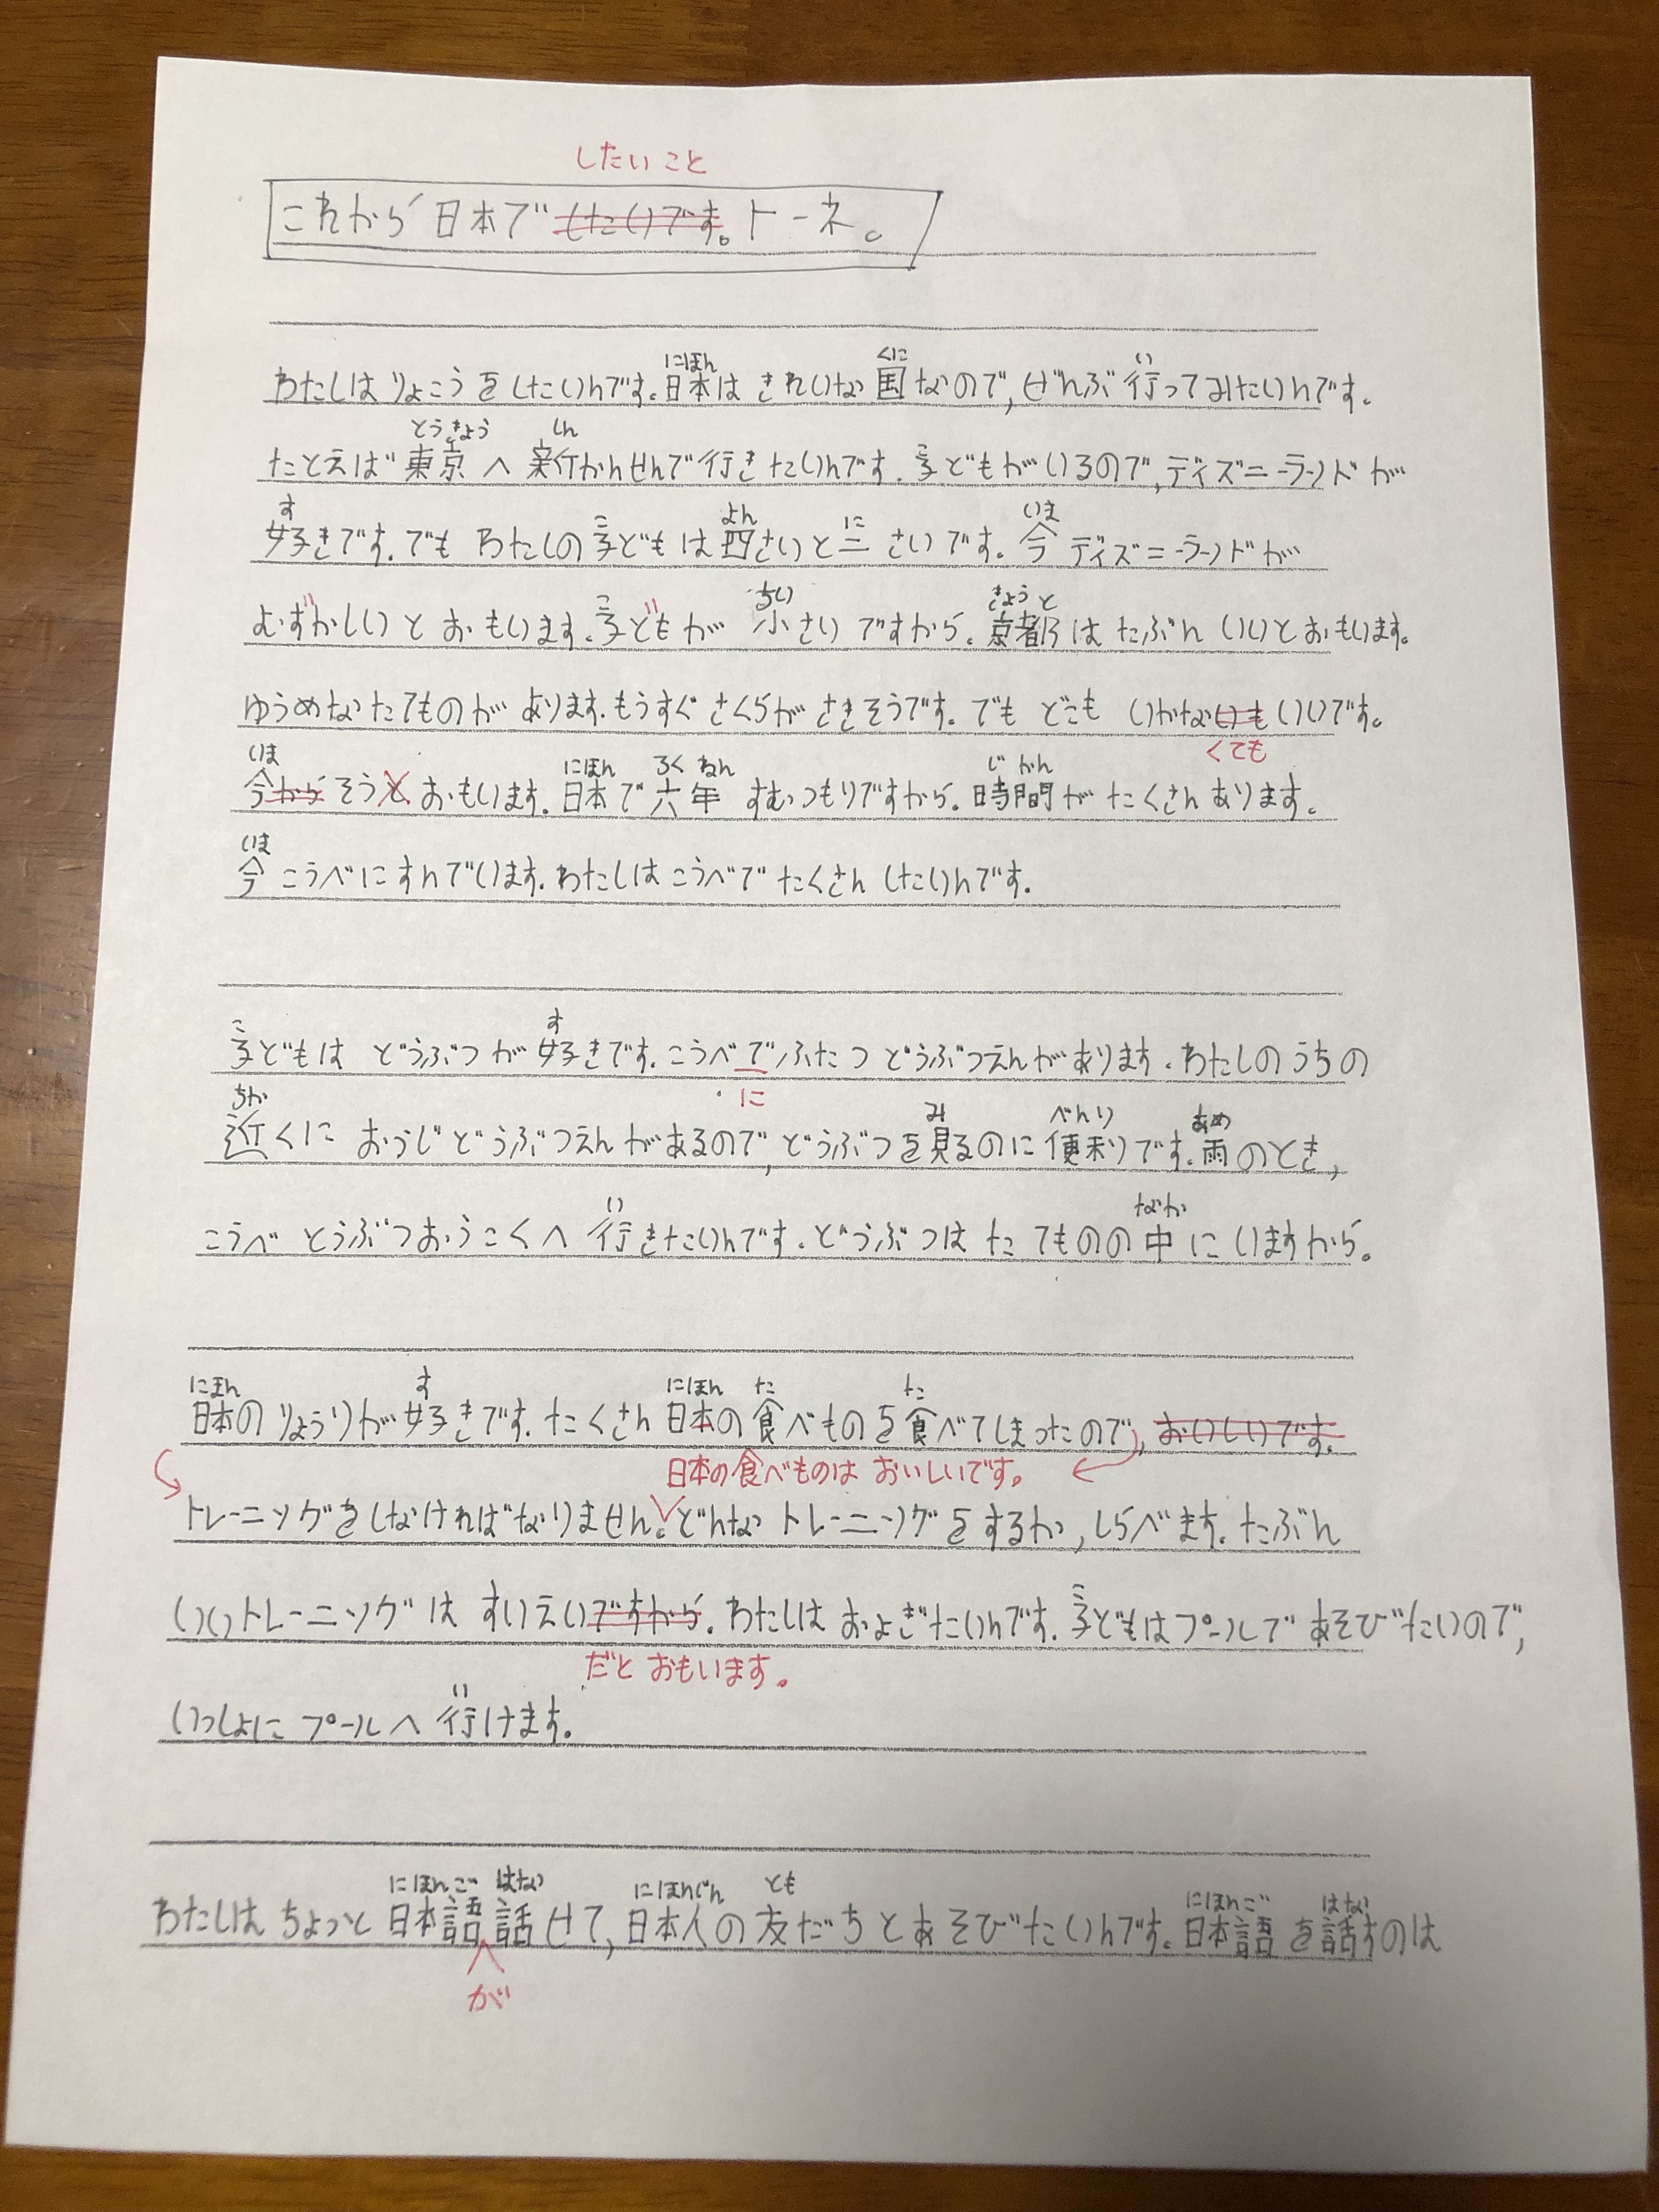 したいこと
これから日本でしたいです。トーネ。
にほん くに い
わたしはりょこうをしたいんです。日本はきれいな国なので、ぜんぶ行ってみたいんです。
とうきょう しん
たとえば東京へ新かんせんで行きたいんです。子どもがいるので、ディズニーランドが
す こ よん に いま
好きです。でもわたしの子どもは四さいと二さいです。今ディズニーランドが
こ ちい きょうと
むずかしいとおもいます。子どもが小さいですから。京都はたぶんいいとおもいます。
ゆうめなたてものがあります。もうすぐさくらがさきそうです。でもどこもいかないもいいです。
くても
いま にほん ろくねん じかん
今からそうとおもいます。日本で六年すむつもりですから。時間がたくさんあります。
いま
今こうべにすんでいます。わたしはこうべでたくさんしたいんです。
こ す
子どもはどうぶつが好きです。こうべでふたつどうぶつえんがあります。わたしのうちの
に
ちか み べんり あめ
近くにおうじどうぶつえんがあるので、どうぶつを見るのに便利です。雨のとき、
い なか
こうべとうぶつおうこくへ行きたいんです。どうぶつはたてものの中にいますから。
にほん す にほん た た
日本のりょうりが好きです。たくさん日本の食べものを食べてしまったので、おいしいです。
日本の食べものはおいしいです。
トレーニングをしなければなりません。どんなトレーニングをするか、しらべます。たぶん
こ
いいトレーニングはすいえいですから。わたしはおよぎたいんです。子どもはプールであそびたいので、
だとおもいます。
い
いっしょにプールへ行けます。
にほんご はな にほんじん とも にほんご はな
わたしはちょっと日本語話せて、日本人の友だちとあそびたいんです。日本語を話すのは
が